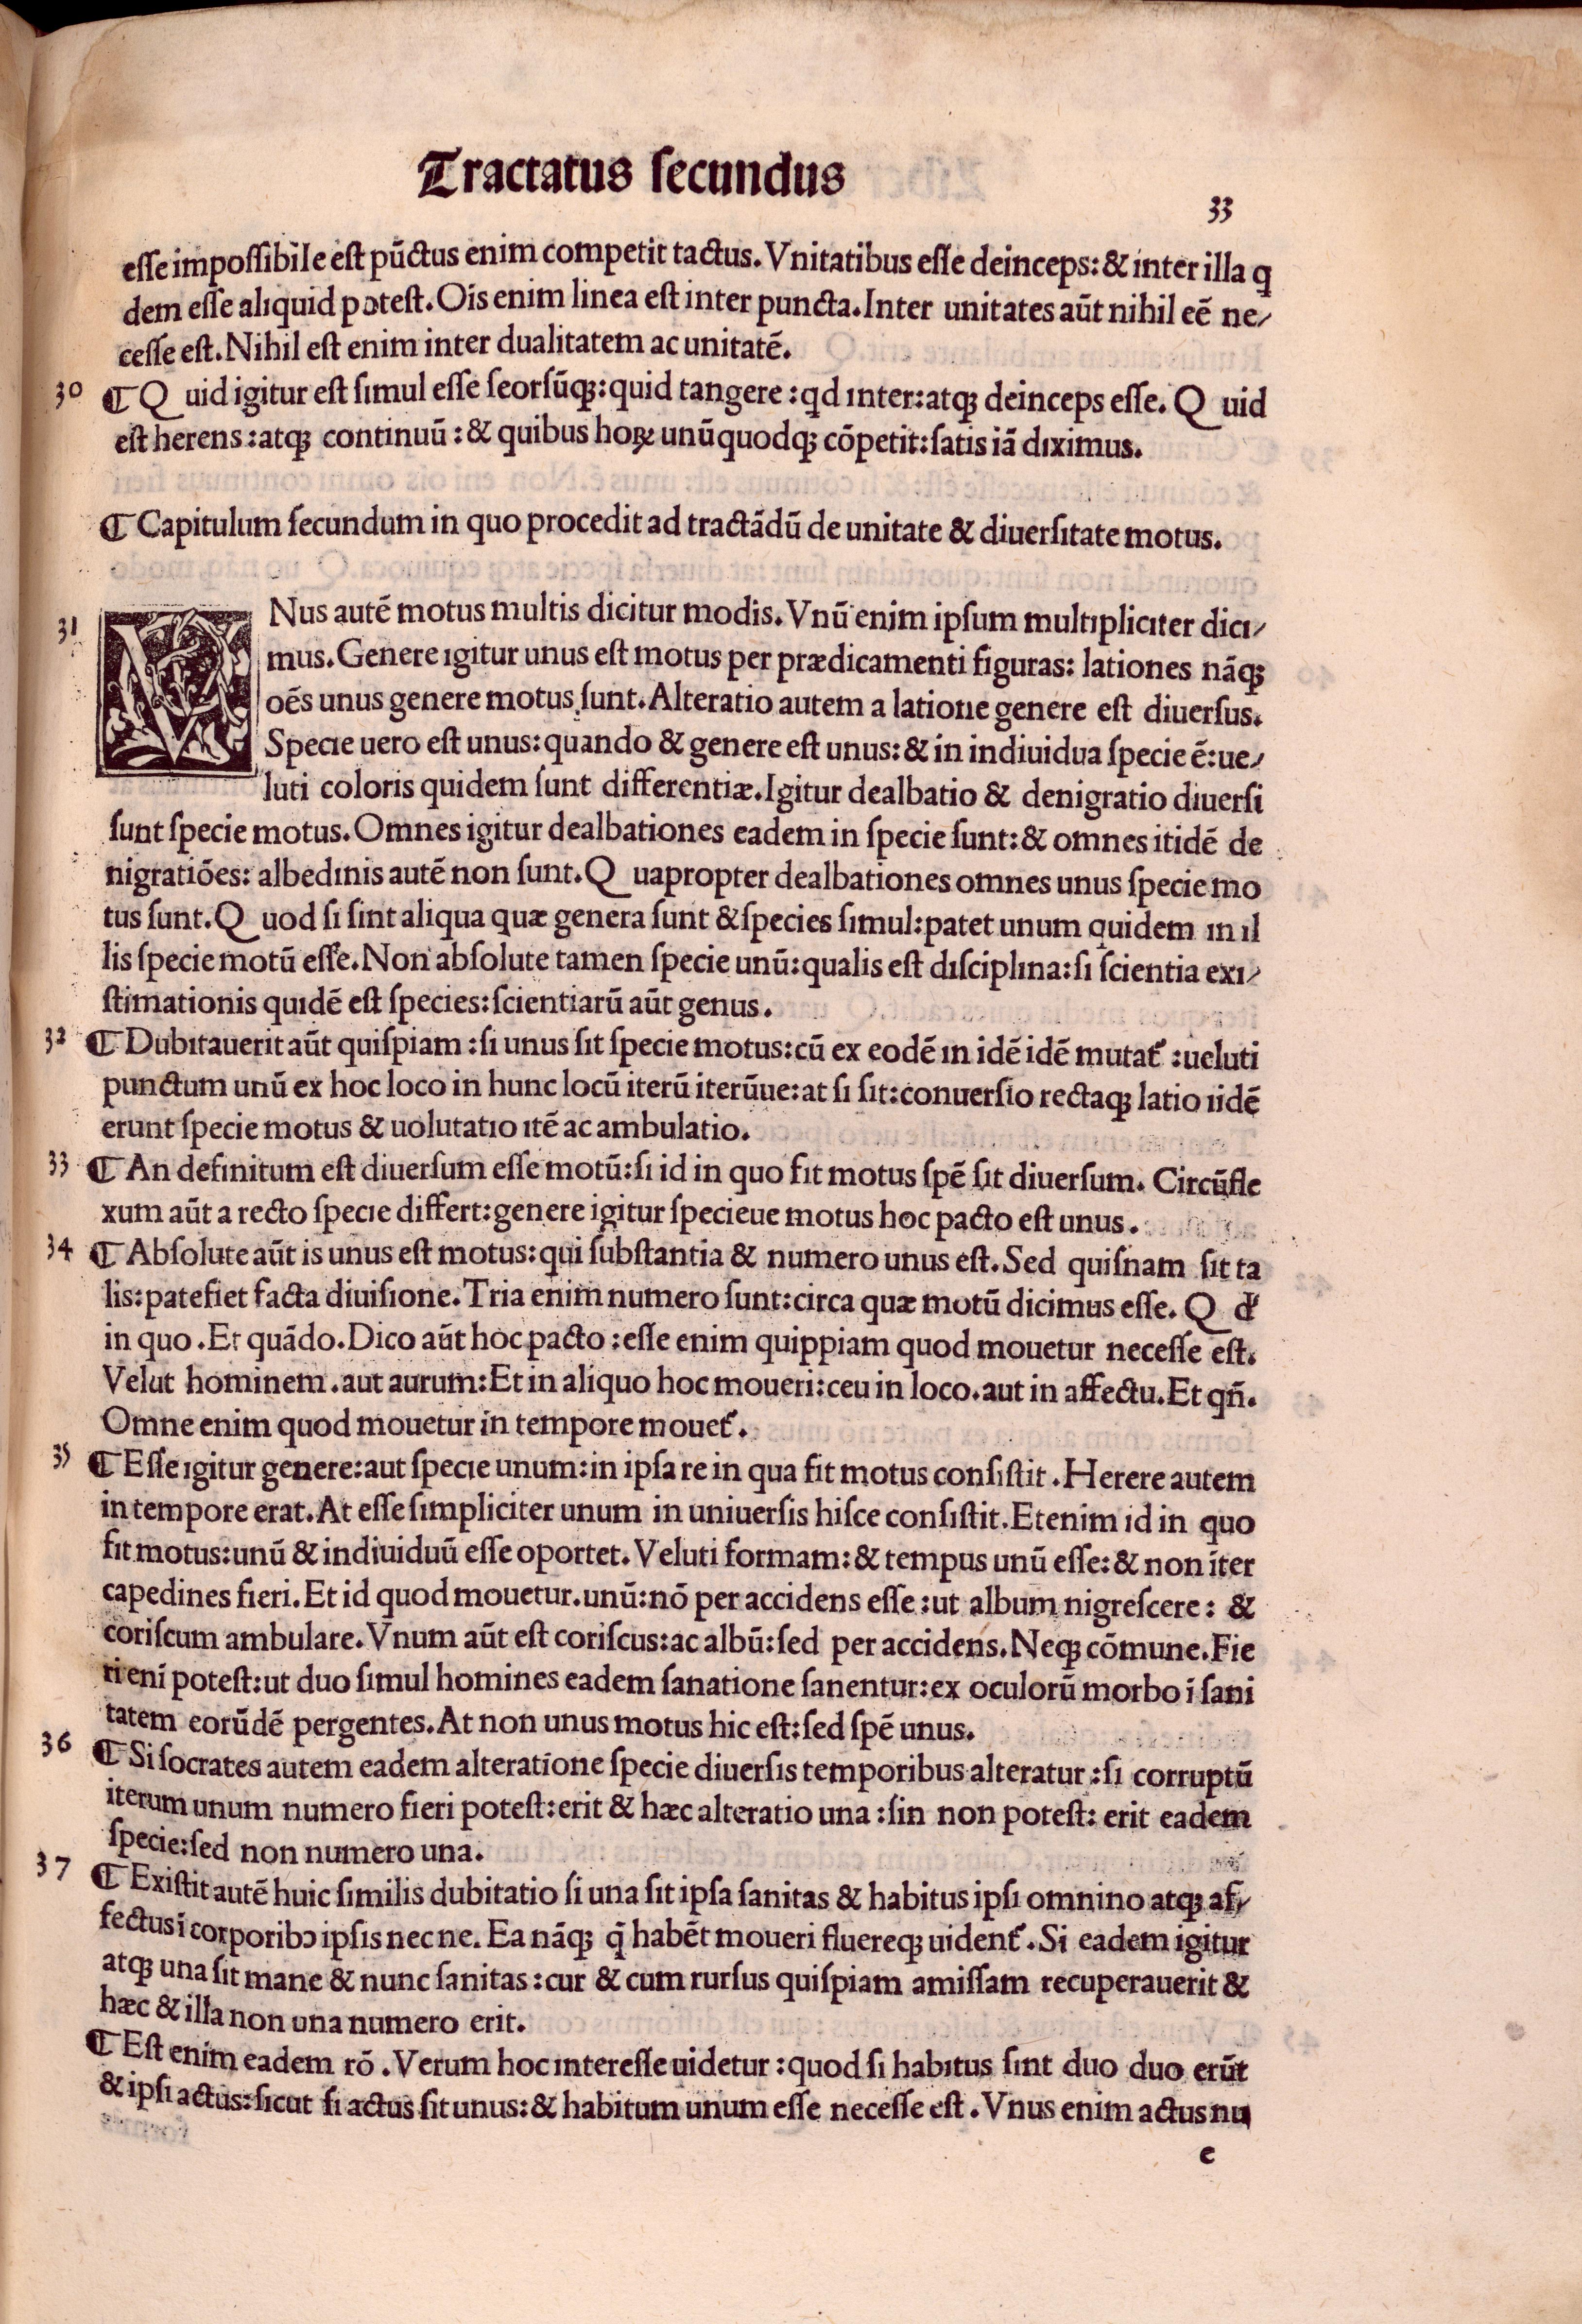 Tractatus secundus
33
esse impossibile est pūctus enim competit tactus. Vnitatibus esse deinceps: & inter illa q
dem esse aliquid potest. Oīs enim linea est inter puncta. Inter unitates aūt nihil eē ne/
cesse est. Nihil est enim inter dualitatem ac unitatē.
30 ¶ Quid igitur est simul esse seorsūqꝫ: quid tangere: qd inter: atqꝫ deinceps esse. Quid
est herens: atqꝫ continuū: & quibus hoꝝ unūquodqꝫ cōpetit: satis iā diximus.
¶ Capitulum secundum in quo procedit ad tractādū de unitate & diuersitate motus.
31 VNus autē motus multis dicitur modis. Vnū enim ipsum multipliciter dici/
mus. Genere igitur unus est motus per prædicamenti figuras: lationes nāqꝫ
oēs unus genere motus sunt. Alteratio autem a latione genere est diuersus.
Specie uero est unus: quando & genere est unus: & in indiuidua specie ē: ue/
luti coloris quidem sunt differentiæ. Igitur dealbatio & denigratio diuersi
sunt specie motus. Omnes igitur dealbationes eadem in specie sunt: & omnes itidē de
nigratiōes: albedinis autē non sunt. Quapropter dealbationes omnes unus specie mo
tus sunt. Quod si sint aliqua quæ genera sunt & species simul: patet unum quidem in il
lis specie motū esse. Non absolute tamen specie unū: qualis est disciplina: si scientia exi/
stimationis quidē est species: scientiarū aūt genus.
32 ¶ Dubitauerit aūt quispiam: si unus sit specie motus: cū ex eodē in idē idē mutat᷑: ueluti
punctum unū ex hoc loco in hunc locū iterū iterūue: at si sit: conuersio rectaqꝫ latio iidē
erunt specie motus & uolutatio itē ac ambulatio.
33 ¶ An definitum est diuersum esse motū: si id in quo fit motus spē sit diuersum. Circūfle
xum aūt a recto specie differt: genere igitur specieue motus hoc pacto est unus.
34 ¶ Absolute aūt is unus est motus: qui substantia & numero unus est. Sed quisnam sit ta
lis: patefiet facta diuisione. Tria enim numero sunt: circa quæ motū dicimus esse. Qd᷑
in quo. Et quādo. Dico aūt hoc pacto: esse enim quippiam quod mouetur necesse est.
Velut hominem. aut aurum: Et in aliquo hoc moueri: ceu in loco. aut in affectu. Et qn̄.
Omne enim quod mouetur in tempore mouet᷑.
35 ¶ Esse igitur genere: aut specie unum: in ipsa re in qua fit motus consistit. Herere autem
in tempore erat. At esse simpliciter unum in uniuersis hisce consistit. Etenim id in quo
fit motus: unū & indiuiduū esse oportet. Veluti formam: & tempus unū esse: & non īter
capedines fieri. Et id quod mouetur. unū: nō per accidens esse: ut album nigrescere: &
coriscum ambulare. Vnum aūt est coriscus: ac albū: sed per accidens. Neqꝫ cōmune. Fie
ri enī potest: ut duo simul homines eadem sanatione sanentur: ex oculorū morbo ī sani
tatem eorūdē pergentes. At non unus motus hic est: sed spē unus.
36 ¶ Si socrates autem eadem alteratione specie diuersis temporibus alteratur: si corruptū
iterum unum numero fieri potest: erit & hæc alteratio una: sin non potest: erit eadem
specie: sed non numero una.
37 ¶ Existit autē huic similis dubitatio si una sit ipsa sanitas & habitus ipsi omnino atqꝫ af/
fectus ī corporibꝰ ipsis nec ne. Ea nāqꝫ q̄ habēt moueri fluereqꝫ uident᷑. Si eadem igitur
atqꝫ una sit mane & nunc sanitas: cur & cum rursus quispiam amissam recuperauerit &
hæc & illa non una numero erit.
¶ Est enim eadem rō. Verum hoc interesse uidetur: quod si habitus sint duo duo erūt
& ipsi actus: sicut si actus sit unus: & habitum unum esse necesse est. Vnus enim actus nu
e